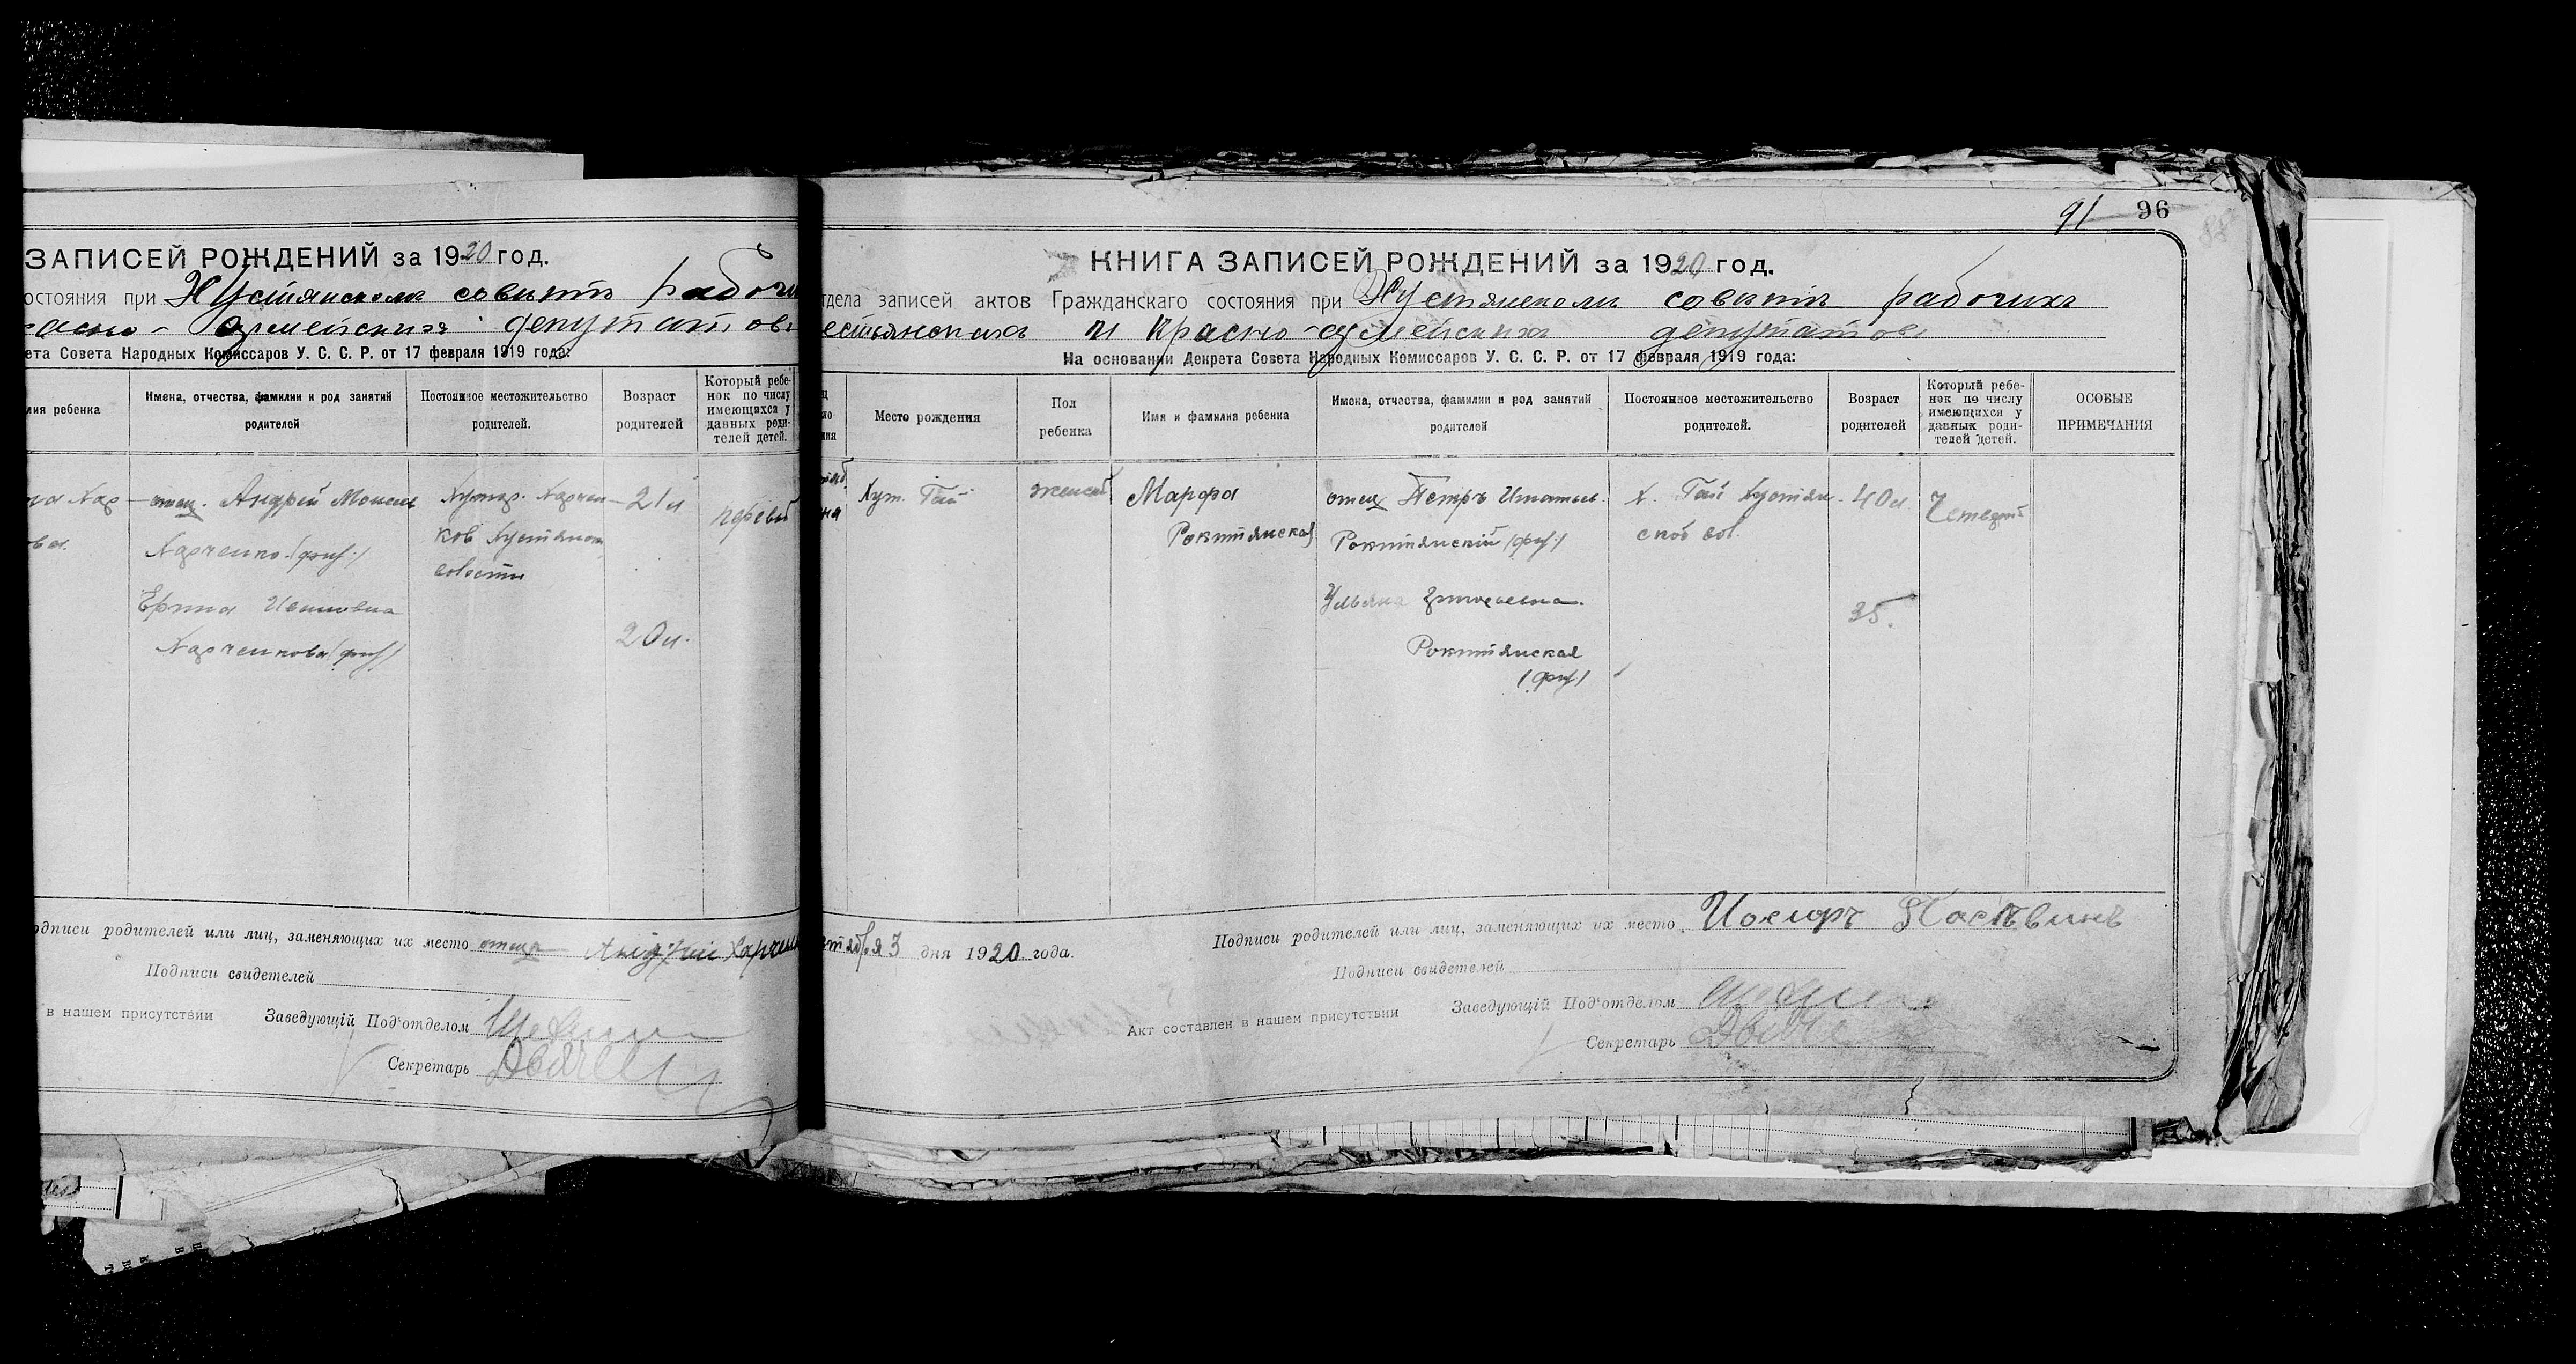 ЗАПИСЕЙ РОЖДЕНИЙ за 1920 год.
остояния при Хустянском совѣтѣ рабочи
расно-армейских депутатовъ
ета Совета Народных Комиссаров У. С. С. Р. от 17 февраля 1919 года:
лия ребенка
Имена, отчества, фамилии и род занятий родителей
Постоянное местожительство родителей.
Возраст родителей
Который ребенок по числу имеющихся у данных родителей детей.
отец. Андрей
Харченко (
Ивановна
Харченкова (
Хутор. Харчен-
ков Хустянск
волости
21 л
20 л.
первый
одписи родителей или лиц, заменяющих их место отец Андрей Харченк
Подписи свидетелей
в нашем присутствии
Заведующій Под'отделом
Секретарь
91 96
КНИГА ЗАПИСЕЙ РОЖДЕНИЙ за 1920 год.
тдела записей актов Гражданскаго состояния при Хустянском совѣтѣ рабочихъ
естьянскихъ и Красно-армейскихъ депутатовъ
На основании Декрета Совета Народных Комиссаров У. С. С. Р. от 17 февраля 1919 года:
Место рождения
Пол ребенка
Имя и фамилия ребенка
Имена, отчества, фамилии и род занятий родителей
Постоянное местожительство родителей.
Возраст родителей
Который ребенок по числу имеющихся у данных родителей детей.
ОСОБЫЕ ПРИМЕЧАНИЯ
Хут. Гай
женский
Марфа
Рокитянская
отец Петръ Игнатьев.
Рокитянскій (
Ульяна Григорьевна.
Рокитянская
х. Гай Хустян-
ской вол.
40 л.
35.
Четверт
тября 3 дня 1920 года.
Подписи родителей или лиц, заменяющих их место
Подписи свидетелей
Акт составлен в нашем присутствии
Заведующій Под'отделом
Секретарь